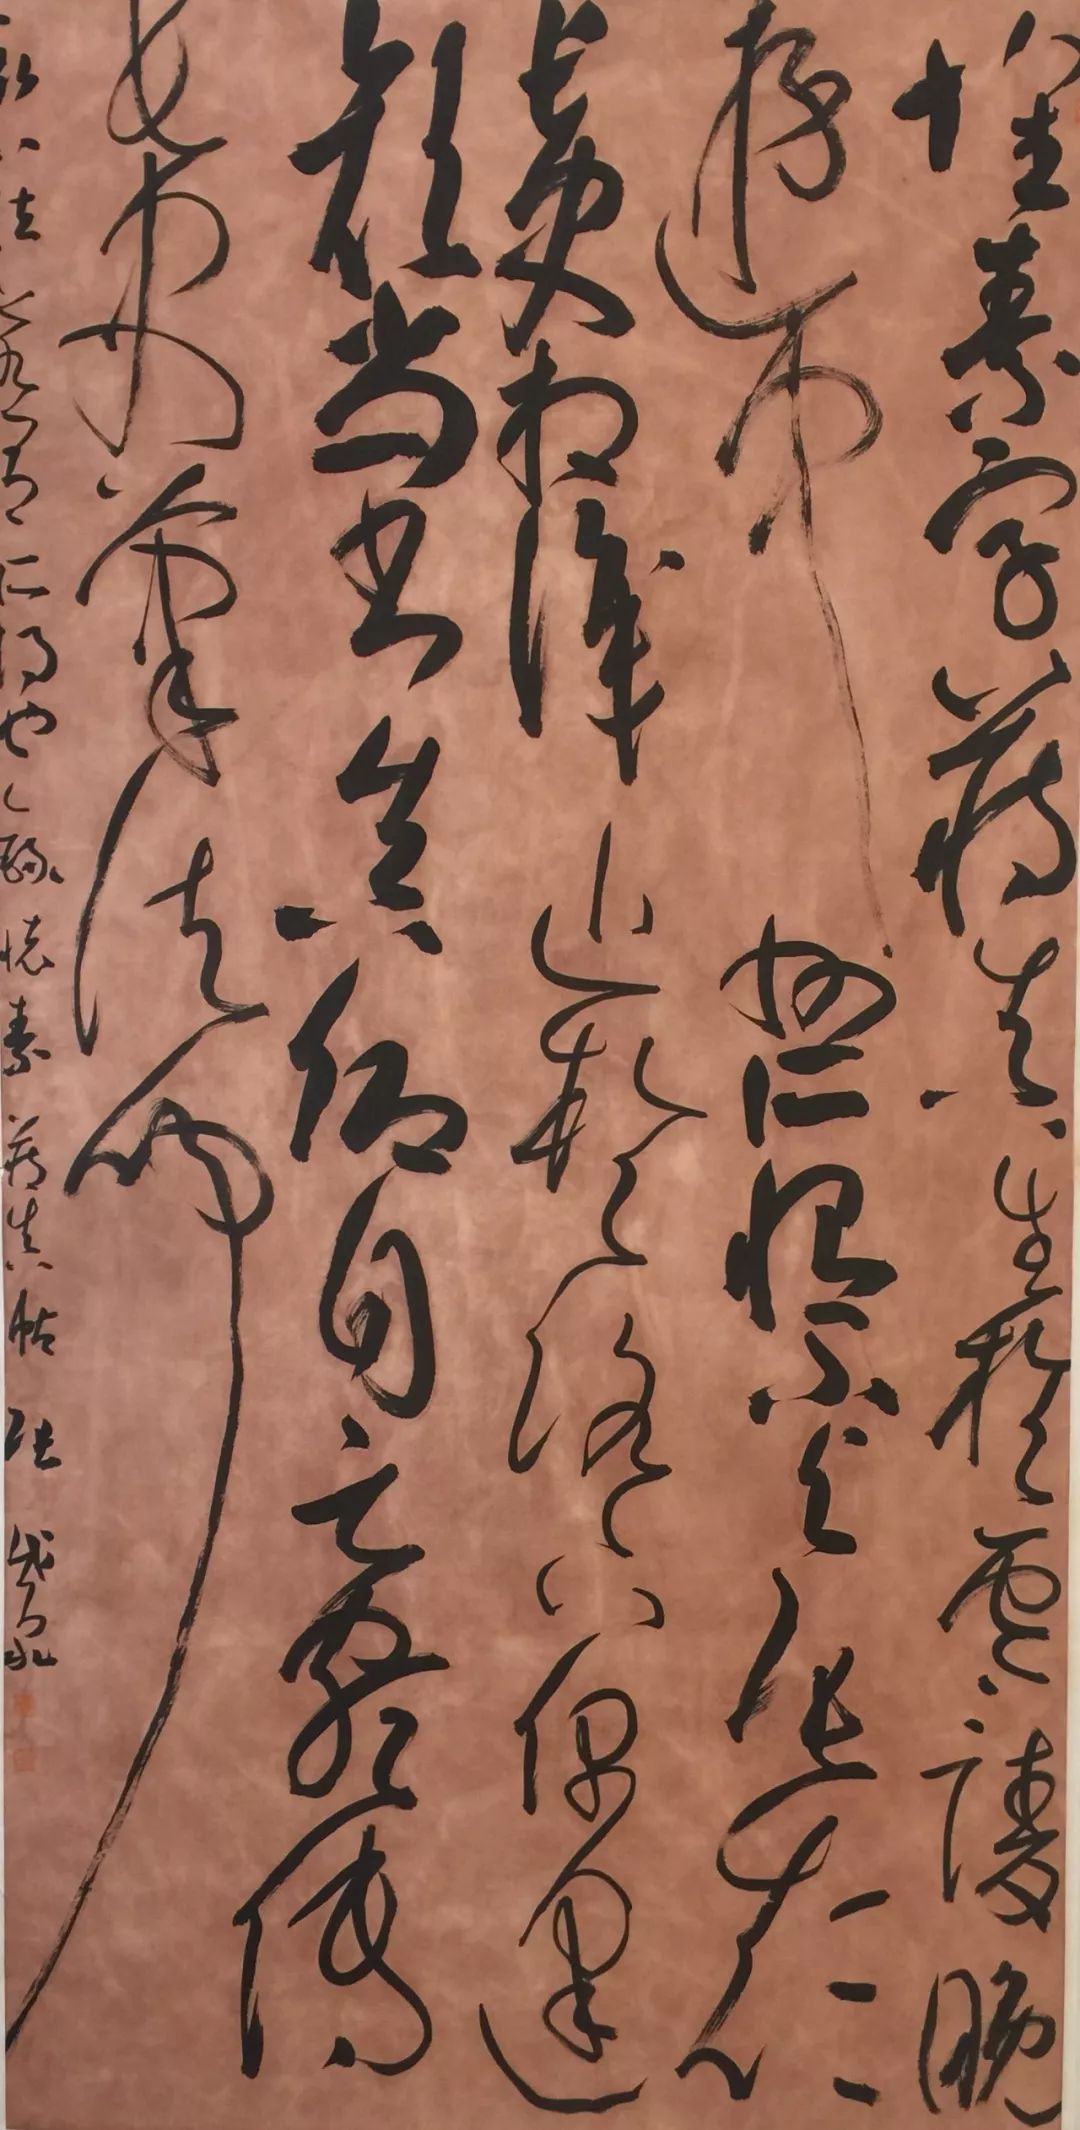 懷素字藏真生於零陵晚
遊中州所恨不與張顛
長史相識近於洛下偶逢
顏尚書真卿自云頗傳
長史筆法聞
斯八法若有所得也 錄懷素藏真帖